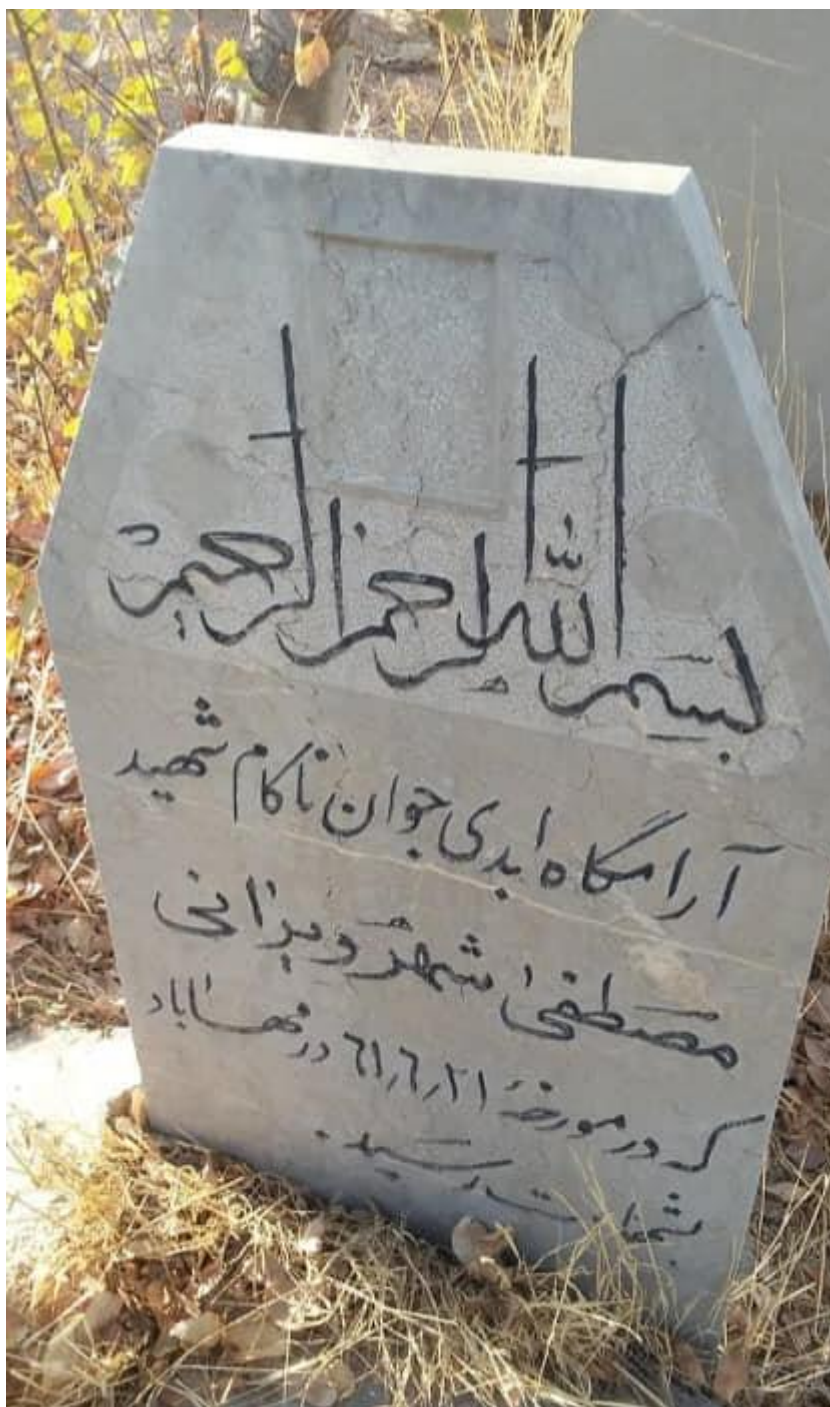 بسم الله الرحمن الرحیم
آرامگاه ابدی جوان ناکام شهید
مصطفی شهرویرانی
که در مورخهٔ ۶۱٫۶٫۲۱ در مهاباد
بشهادت رسید.